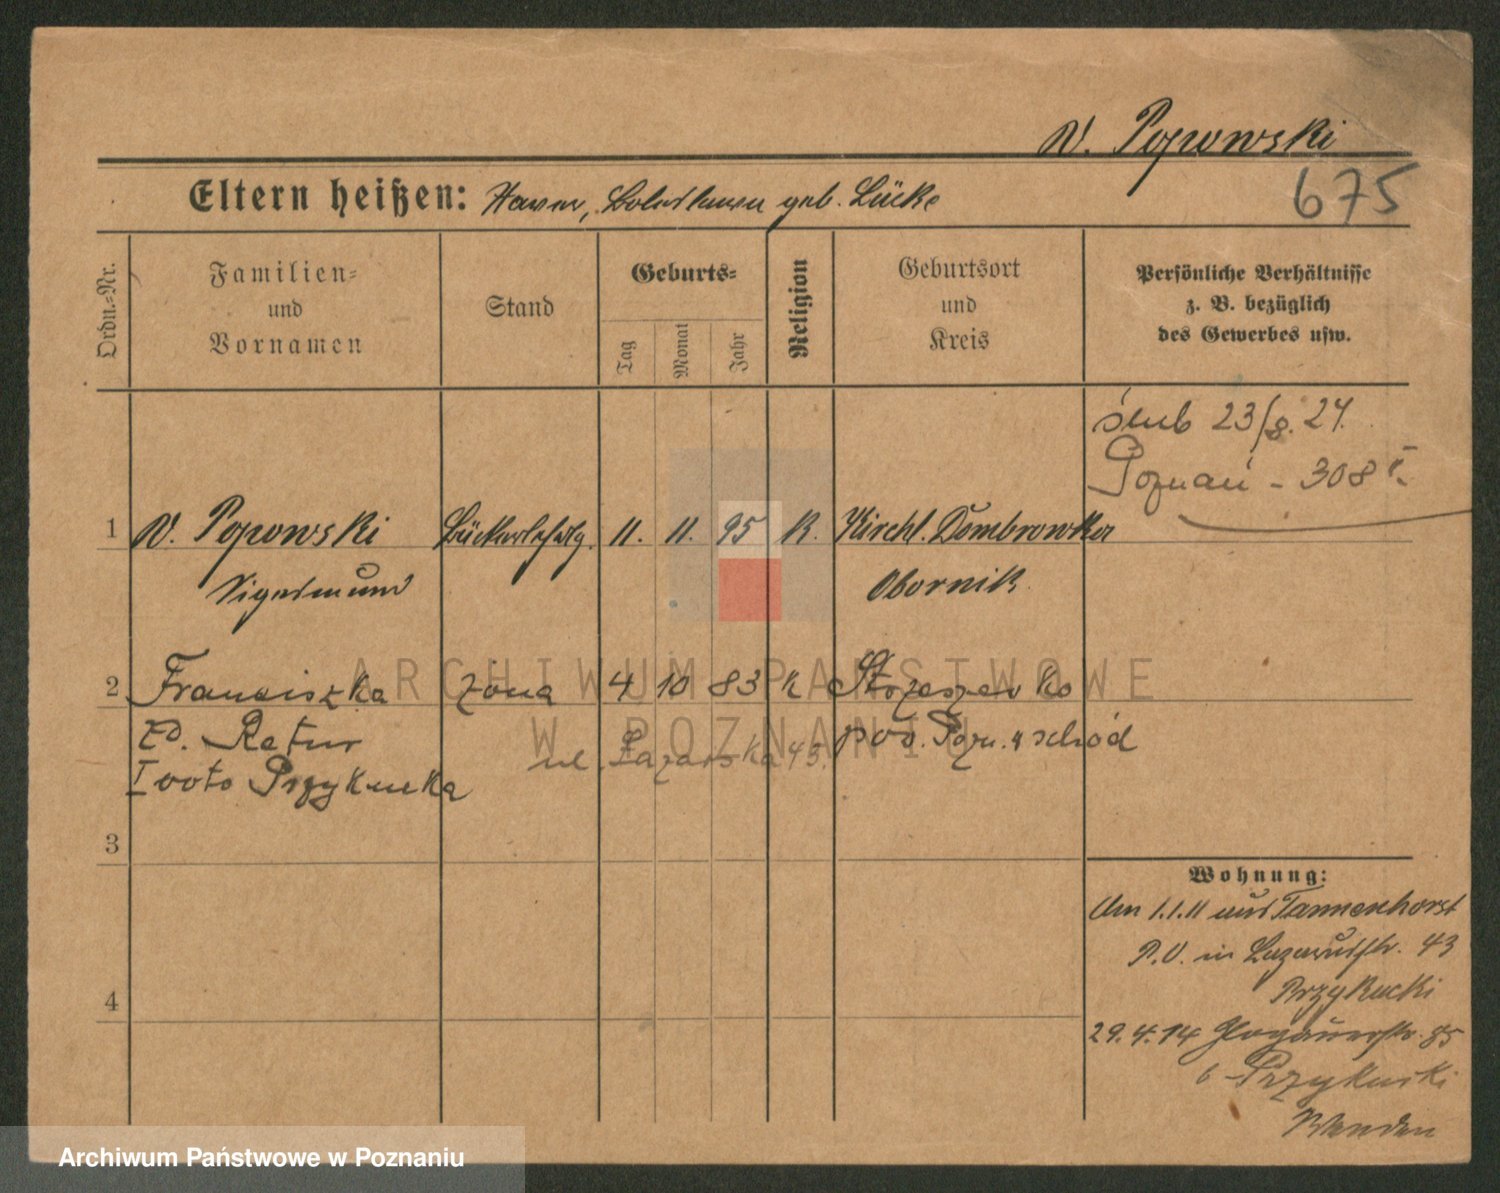 v. Popowski
Eltern heißen: Xaver, Boleslawa geb. Lücke
675
Ordn.-Nr.
Familien-
und
Vornamen
Stand
Geburts-
Tag
Monat
Jahr
Religion
Geburtsort
und
Kreis
Persönliche Verhältnisse
z. B. bezüglich
des Gewerbes usw.
ślub 23/8. 24.
Poznań - 308
1 v. Popowski Bäckerlehrlg. 11. 11. 95 K. Kirchl. Dombrowka
Sigesmund Obornik.
2 Franciszka żona 4 10 83 K Strzeszewko
zd. Ratur pow. Pozn. wschód
ul. Łazarska 43.
I voto Przykucka
3
4
Wohnung:
Am 1.1.11 aus Tannenhorst
P.O. in Lazarusstr. 43
Przykucki
29.4.14 Glogauerstr. 85
b Przykucki
ARCHIWUM PAŃSTWOWE
W POZNANIU
Archiwum Państwowe w Poznaniu